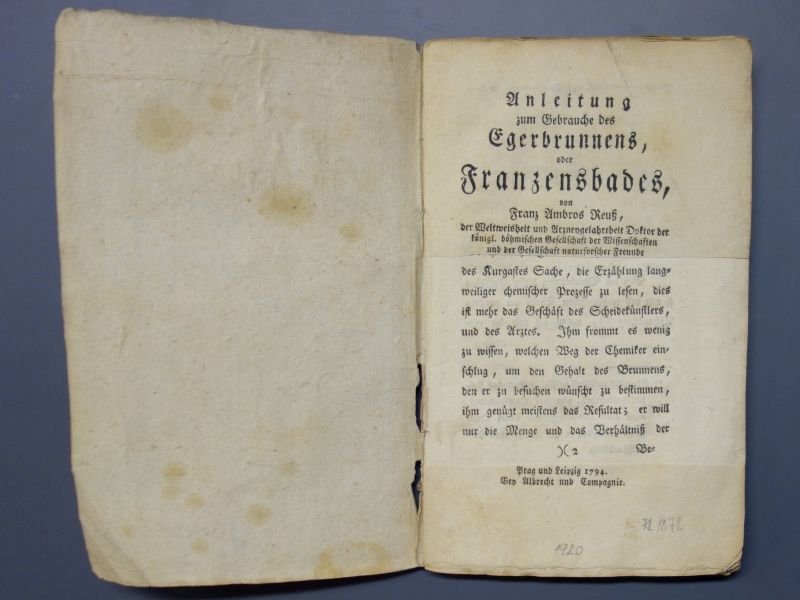 Anleitung
zum Gebrauche des
Egerbrunnens,
oder
Franzensbades,
von
Franz Ambros Reuß,
der Weltweisheit und Arzneygelahrtheit Doktor der
königl. böhmischen Gesellschaft der Wissenschaften
und der Gesellschaft naturforscher Freunde
des Kurgastes Sache, die Erzählung lang=
weiliger chemischer Prozesse zu lesen, dies
ist mehr das Geschäft des Scheidekünstlers,
und des Arztes. Ihm frommt es wenig
zu wissen, welchen Weg der Chemiker ein=
schlug, um den Gehalt des Brunnens,
den er zu besuchen wünscht zu bestimmen,
ihm genügt meistens das Resultat; er will
nur die Menge und das Verhältniß der
)( 2 Be=
Prag und Leipzig 1794.
Bey Albrecht und Compagnie.
1872
1920